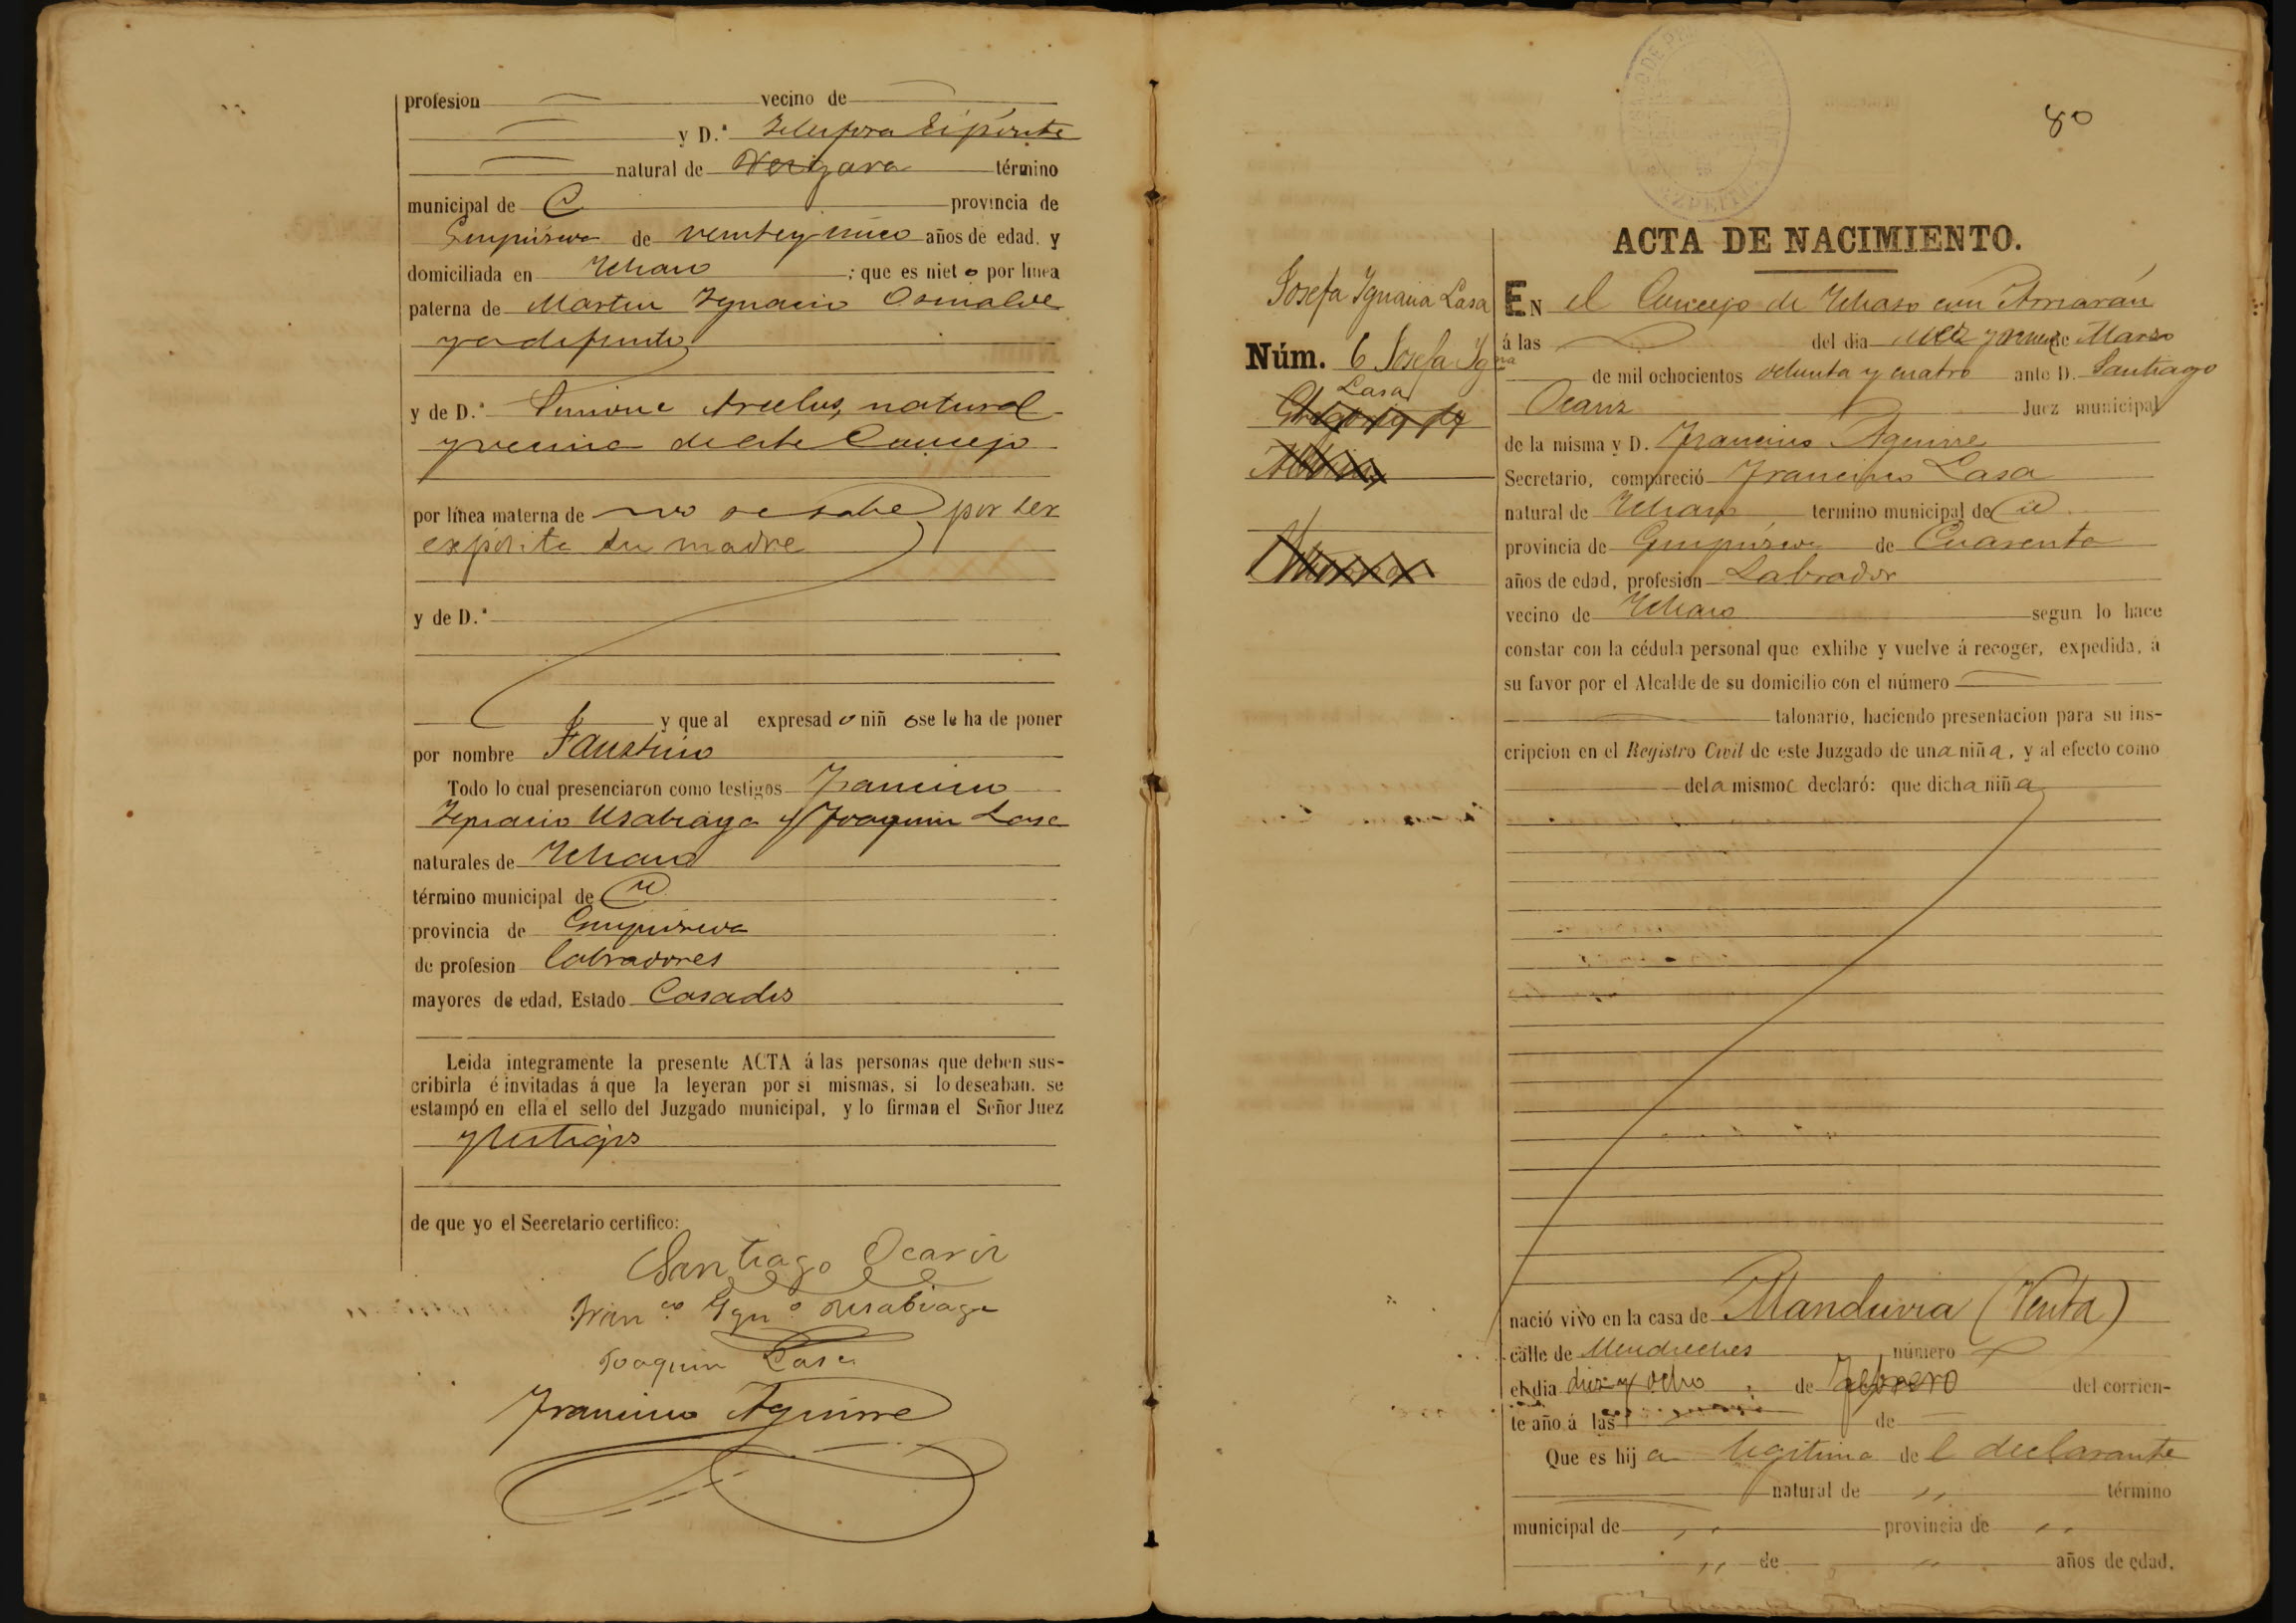 profesion vecino de
y D.ª Telesfora Espósita
natural de Vergara término
municipal de provincia de
Guipúzcoa de veinte y cinco años de edad, y
domiciliada en Ichaso ; que es niet o por línea
paterna de Martin Ygnacio Osinalde
ya difunto
y de D.ª Simona Arcelus, natural
y vecina de este Concejo
por línea materna de no se sabe por ser
espósita su madre
y de D.ª
y que al expresad o niñ o se le ha de poner
por nombre Faustino
Todo lo cual presenciaron como testigos Francisco
Ygnacio Usabiaga y Joaquin Lasa
naturales de Ichaso
término municipal de id
provincia de Guipúzcoa
de profesion labradores
mayores de edad, Estado Casados
Leida integramente la presente ACTA á las personas que deben sus-
cribirla é invitadas á que la leyeran por si mismas, si lo deseaban, se
estampó en ella el sello del Juzgado municipal, y lo firman el Señor Juez
y testigos
de que yo el Secretario certifico:
Santiago Ocariz
Fran.co Ygn.o Usabiaga
Joaquin Lasa
Francisco Aguirre
80
ACTA DE NACIMIENTO.
Josefa Ygnacia Lasa
Núm. 6 Josefa Ygna
Lasa
EN el Concejo de Ichaso con Arriarán
á las del dia diez y nueve de Marzo
de mil ochocientos ochenta y cuatro ante D. Santiago
Ocariz Juez municipal
de la misma y D. Francisco Aguirre
Secretario, compareció Francisco Lasa
natural de Ichaso termino municipal de id
provincia de Guipúzcoa de Cuarenta
años de edad, profesion Labrador
vecino de Ichaso segun lo hace
constar con la cédula personal que exhibe y vuelve á recoger, expedida, á
su favor por el Alcalde de su domicilio con el número
talonario, haciendo presentacion para su ins-
cripcion en el Registro Civil de este Juzgado de una niña, y al efecto como
del a mismo declaró: que dicha niña
nació vivo en la casa de Manduvia (Venta)
calle de número
el dia diez y ocho de Febrero del corrien-
te año á las de
Que es hij a legitima de l declarante
natural de " término
municipal de " provincia de "
" de " años de edad,